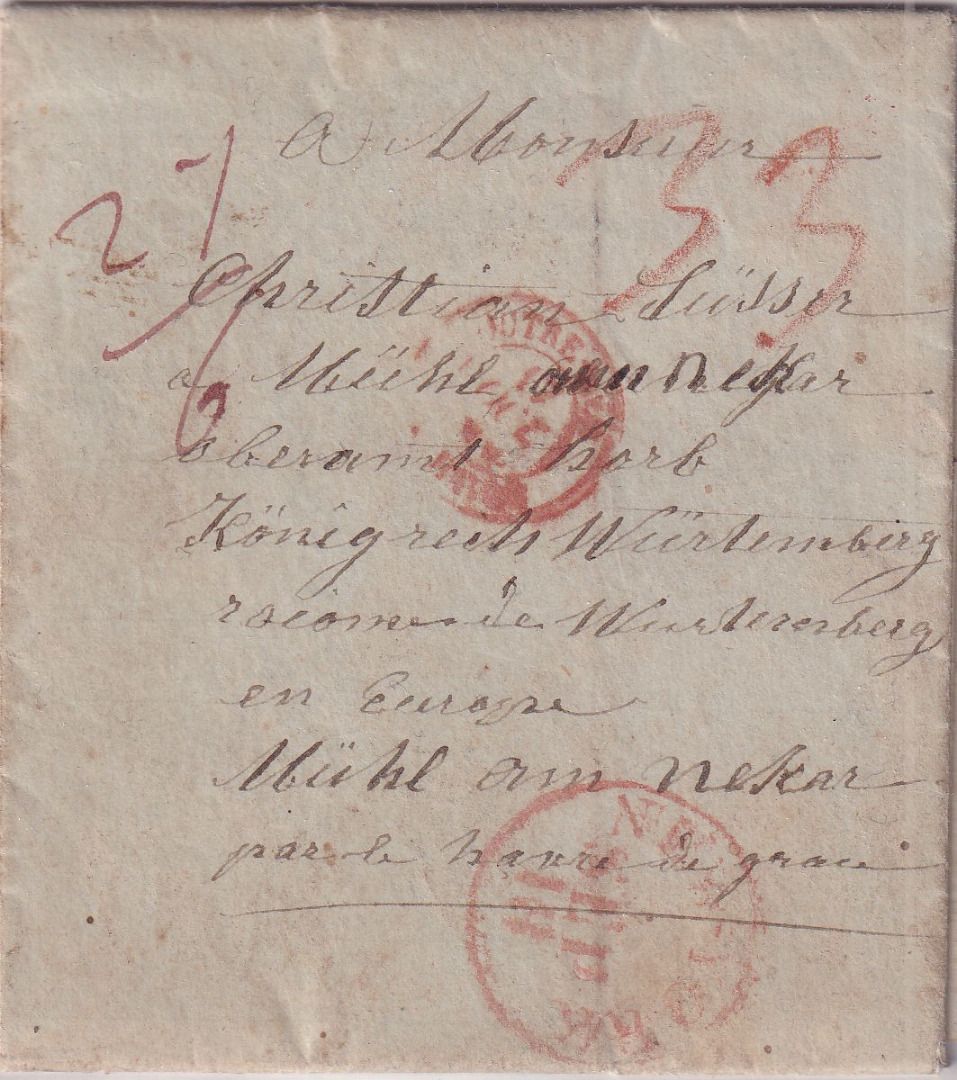 a Monsieur
33
Christian Süsser
a Mühl am nekar
oberamt horb
Königreich Würtemberg
roiome de Wurtemberg
en Europe
Mühl am nekar
par le havre de grace
NEW YORK